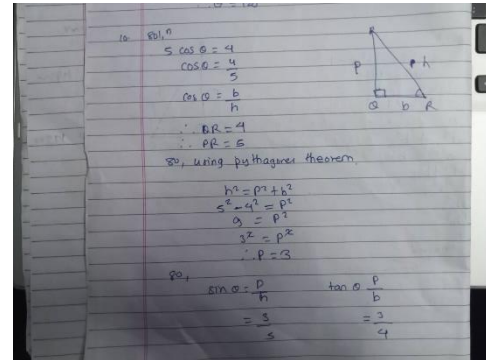 10. Solⁿ
5 cos θ = 4
cos θ = 4/5
cos θ = b/h
∴ QR = 4
∴ PR = 5
So, using pythagores theorem,
h² = p² + b²
5² - 4² = p²
9 = p²
3² = p²
∴ P = 3
So,
sin θ = p/h
= 3/5
tan θ p/b
= 3/4
P
h
Q
b
R